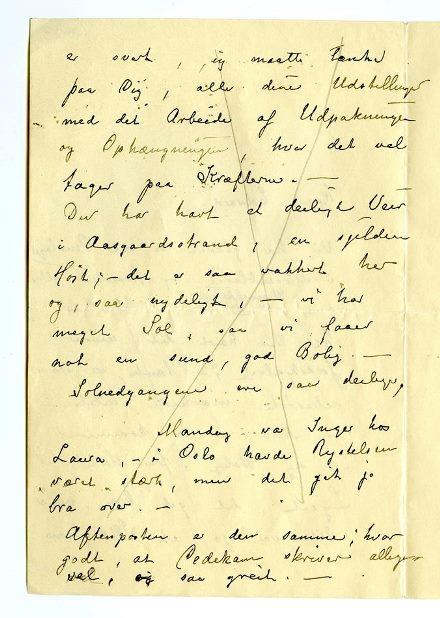 er svært, jeg maatte tænke
paa Dig, alle dine Udstillinger
med det Arbeide af Udpakningen
og Ophængningen, hvor det vel
tager paa Kræfterne. —
Du har havt et deiligt Veir
i Aasgaardsstrand, en sjelden
Høst; – det er saa vakkert her
og, saa nydeligt, – vi har
meget Sol, saa vi faaer
nok en sund, god Bolig. —
Solnedgangene ere saa deilige,
Mandag var Inger hos
Laura, – i Oslo havde Rystelsen
været stærk, men det gik jo
bra over. —
Aftenposten er den samme; hvor
godt, at Pedekam skriver allige-
vel, og saa greit. —